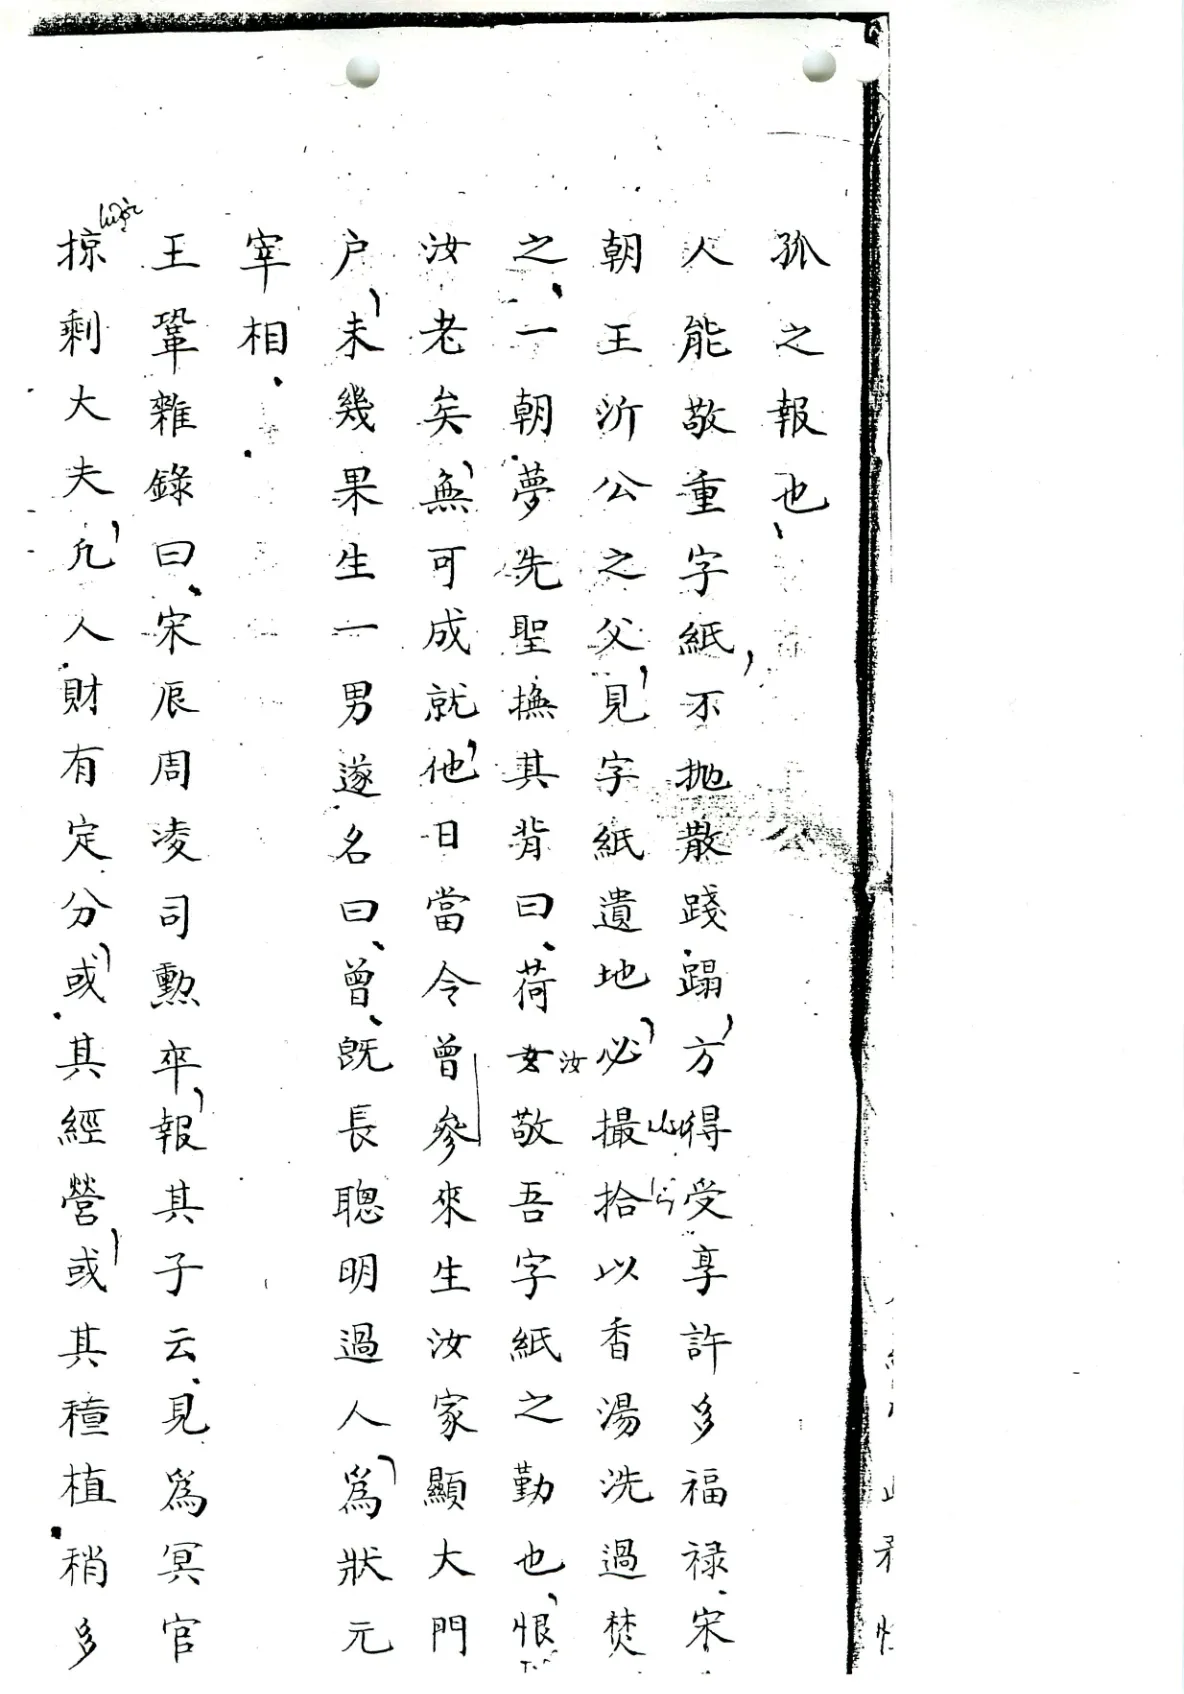 孤之報也
人能敬重字紙不抛散踐蹋方得受享許多福禄宋
朝王沂公之父見字紙遺地必撮拾以香湯洗過焚
之一朝夢先聖撫其背曰荷女汝敬吾字紙之勤也恨
汝老矣無可成就他日當令曾參來生汝家顯大門
户未幾果生一男遂名曰曾既長聰明過人為狀元
宰相
王鞏雜錄曰宋辰周凌司勲卒報其子云見為冥官
掠剩大夫凡人財有定分或其經營或其種植稍多
lược